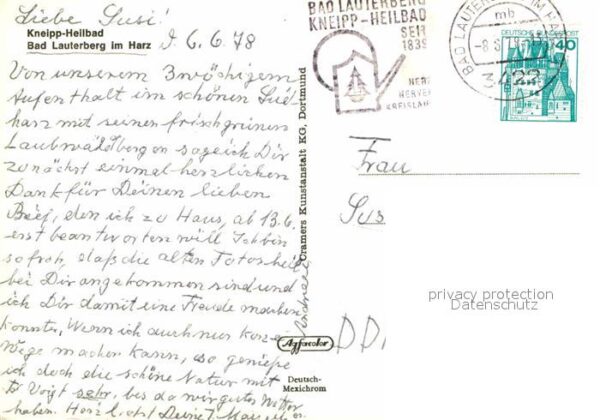 Liebe Susi!
Kneipp-Heilbad
Bad Lauterberg im Harz
d. 6.6.78
Von unserem 3wöchigem
Aufenthalt im schönen Süd-
harz mit seinen frischgrünen
Laubwäldbergen sage ich Dir
zunächst einmal herzlichen
Dank für Deinen lieben
Brief, den ich zu Haus, ab 13.6.
erst beantworten will. Ich bin
so froh, daß die alten Fotos heil
bei Dir angekommen sind und
ich Dir damit eine Freude machen
konnte. Wenn ich auch nur kurze
Wege machen kann, so genieße
ich doch die schöne Natur mit
Voigt sehr, bis da wir gutes Wetter
haben. Herzl. 
Cramers Kunstanstalt KG, Dortmund
Agfacolor
Deutsch-
Mexichrom
BAD LAUTERBERG
KNEIPP-HEILBAD
SEIT
1839
HERZ
NERVEN
KREISLAUF
BAD LAUTERBERG IM HARZ
mb
3422
DEUTSCHE BUNDESPOST
40
Frau
Sus
privacy protection
Datenschutz
DD